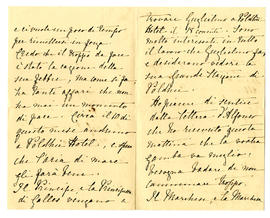 e ci vuole un poco di tempo
per rimettersi in forza
Credo che il troppo da fare
è stato la cagione della
sua febbre, ma come si fa
ha tanti affari che non
ha mai un momento
di pace. Circa il 10 di
questo mese andremo
a Poldhu Hotel, e spero
che l'aria di mare
gli farà bene.
Il Principe e la Principessa
di Galles vengono a
trovare Guglielmo a Poldhu
Hotel il
molto interessati in tutto
il lavoro che Guglielmo fa,
e desiderano vedere la
sua Grande Stazione di
Poldhu.
Ho piacere di sentire
dalla lettera d'Alfonso
che ho ricevuto questa
mattina che la vostra
gamba va meglio.
Bisogna badare di non
camminare troppo.
Il Marchese, e la Marchesa